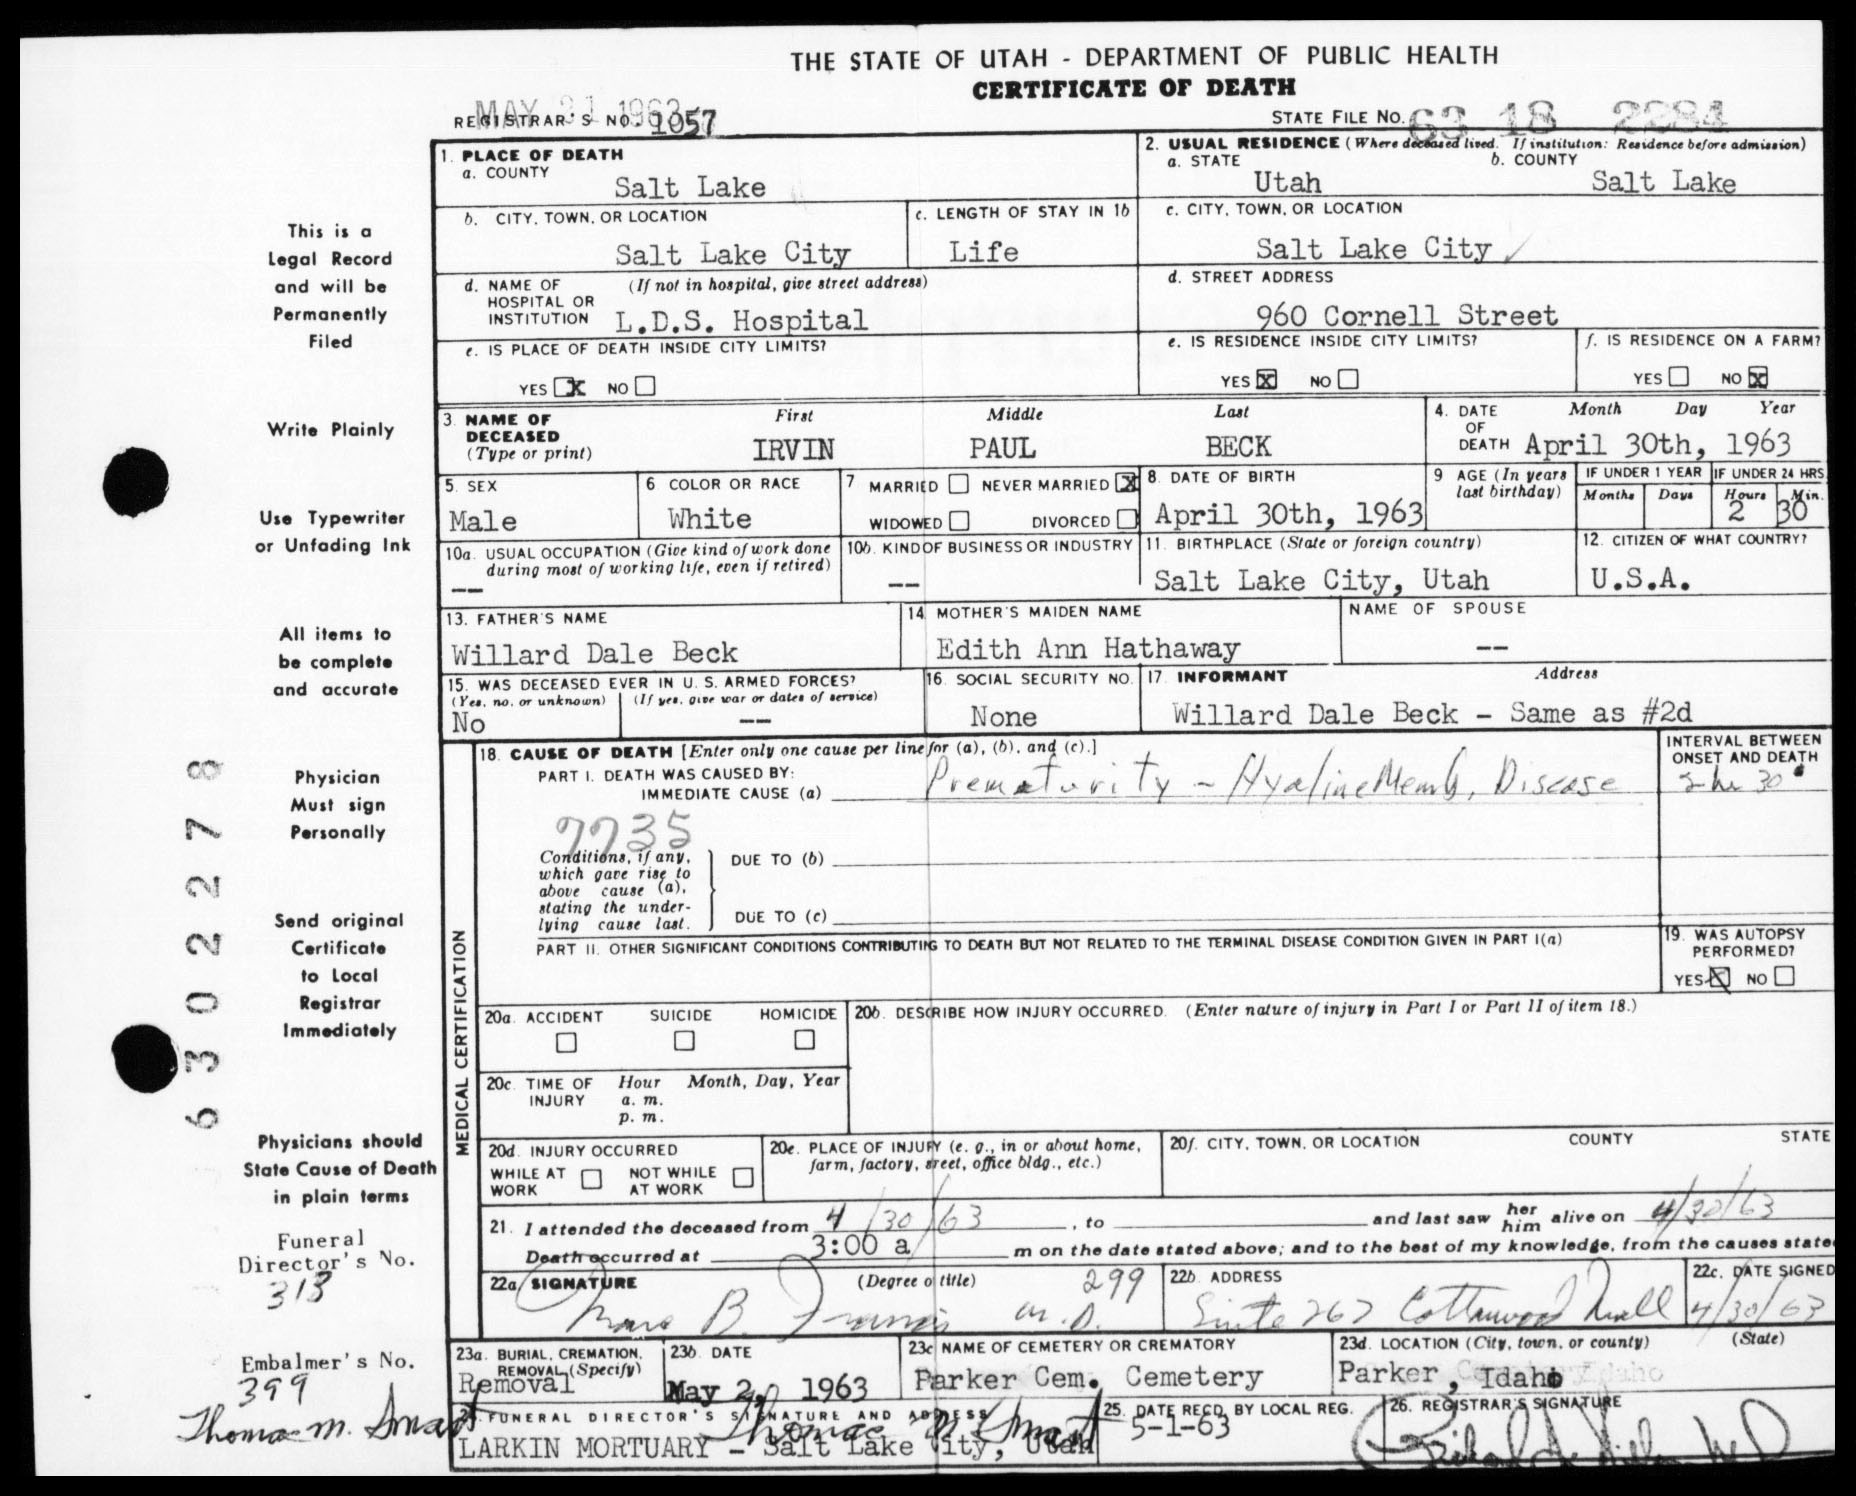 THE STATE OF UTAH - DEPARTMENT OF PUBLIC HEALTH
CERTIFICATE OF DEATH
MAY 31 1963
REGISTRAR'S NO. 1057
STATE FILE NO. 63 18 2284
1. PLACE OF DEATH
a. COUNTY
Salt Lake
2. USUAL RESIDENCE (Where deceased lived. If institution: Residence before admission)
a. STATE b. COUNTY
Utah Salt Lake
b. CITY, TOWN, OR LOCATION
Salt Lake City
c. LENGTH OF STAY IN 1b
Life
c. CITY, TOWN, OR LOCATION
Salt Lake City
d. NAME OF HOSPITAL OR INSTITUTION (If not in hospital, give street address)
L.D.S. Hospital
d. STREET ADDRESS
960 Cornell Street
e. IS PLACE OF DEATH INSIDE CITY LIMITS?
YES X NO
e. IS RESIDENCE INSIDE CITY LIMITS?
YES X NO
f. IS RESIDENCE ON A FARM?
YES NO X
3. NAME OF DECEASED (Type or print)
First Middle Last
IRVIN PAUL BECK
4. DATE OF DEATH Month Day Year
April 30th, 1963
5. SEX
Male
6 COLOR OR RACE
White
7 MARRIED NEVER MARRIED X
WIDOWED DIVORCED
8. DATE OF BIRTH
April 30th, 1963
9 AGE (In years last birthday)
IF UNDER 1 YEAR
Months Days
IF UNDER 24 HRS.
Hours Min.
2 30
10a. USUAL OCCUPATION (Give kind of work done during most of working life, even if retired)
--
10b. KIND OF BUSINESS OR INDUSTRY
--
11. BIRTHPLACE (State or foreign country)
Salt Lake City, Utah
12. CITIZEN OF WHAT COUNTRY?
U.S.A.
13. FATHER'S NAME
Willard Dale Beck
14 MOTHER'S MAIDEN NAME
Edith Ann Hathaway
NAME OF SPOUSE
--
15. WAS DECEASED EVER IN U. S. ARMED FORCES?
(Yes, no, or unknown) (If yes, give war or dates of service)
No --
16. SOCIAL SECURITY NO.
None
17. INFORMANT Address
Willard Dale Beck - Same as #2d
MEDICAL CERTIFICATION
18. CAUSE OF DEATH [Enter only one cause per line for (a), (b), and (c).]
PART I. DEATH WAS CAUSED BY:
IMMEDIATE CAUSE (a) Prematurity - Hyaline Memb. Disease
INTERVAL BETWEEN ONSET AND DEATH
2 hr 30
7735
Conditions, if any, which gave rise to above cause (a), stating the underlying cause last.
DUE TO (b)
DUE TO (c)
PART II. OTHER SIGNIFICANT CONDITIONS CONTRIBUTING TO DEATH BUT NOT RELATED TO THE TERMINAL DISEASE CONDITION GIVEN IN PART I(a)
19. WAS AUTOPSY PERFORMED?
YES X NO
20a. ACCIDENT SUICIDE HOMICIDE
20b. DESCRIBE HOW INJURY OCCURRED. (Enter nature of injury in Part I or Part II of item 18.)
20c. TIME OF INJURY Hour Month, Day, Year
a. m.
p. m.
20d. INJURY OCCURRED
WHILE AT WORK NOT WHILE AT WORK
20e. PLACE OF INJURY (e. g., in or about home, farm, factory, street, office bldg., etc.)
20f. CITY, TOWN, OR LOCATION COUNTY STATE
21. I attended the deceased from 4/30/63, to and last saw her him alive on 4/30/63
Death occurred at 3:00 a m on the date stated above; and to the best of my knowledge, from the causes state
22a. SIGNATURE (Degree or title) 299
B. Francis M.D.
22b. ADDRESS
Suite 267 Cottonwood Mall
22c. DATE SIGNED
4/30/63
23a. BURIAL, CREMATION, REMOVAL (Specify)
Removal
23b. DATE
May 2, 1963
23c NAME OF CEMETERY OR CREMATORY
Parker Cem. Cemetery
23d. LOCATION (City, town, or county) (State)
Parker, Idaho
24. FUNERAL DIRECTOR'S SIGNATURE AND ADDRESS
Thomas M. Smart
LARKIN MORTUARY - Salt Lake City, Utah
25. DATE RECD. BY LOCAL REG.
5-1-63
26. REGISTRAR'S SIGNATURE
This is a
Legal Record
and will be
Permanently
Filed
Write Plainly
Use Typewriter
or Unfading Ink
All items to
be complete
and accurate
Physician
Must sign
Personally
Send original
Certificate
to Local
Registrar
Immediately
Physicians should
State Cause of Death
in plain terms
Funeral
Director's No.
313
Embalmer's No.
399
Thomas M. Smart
6302278